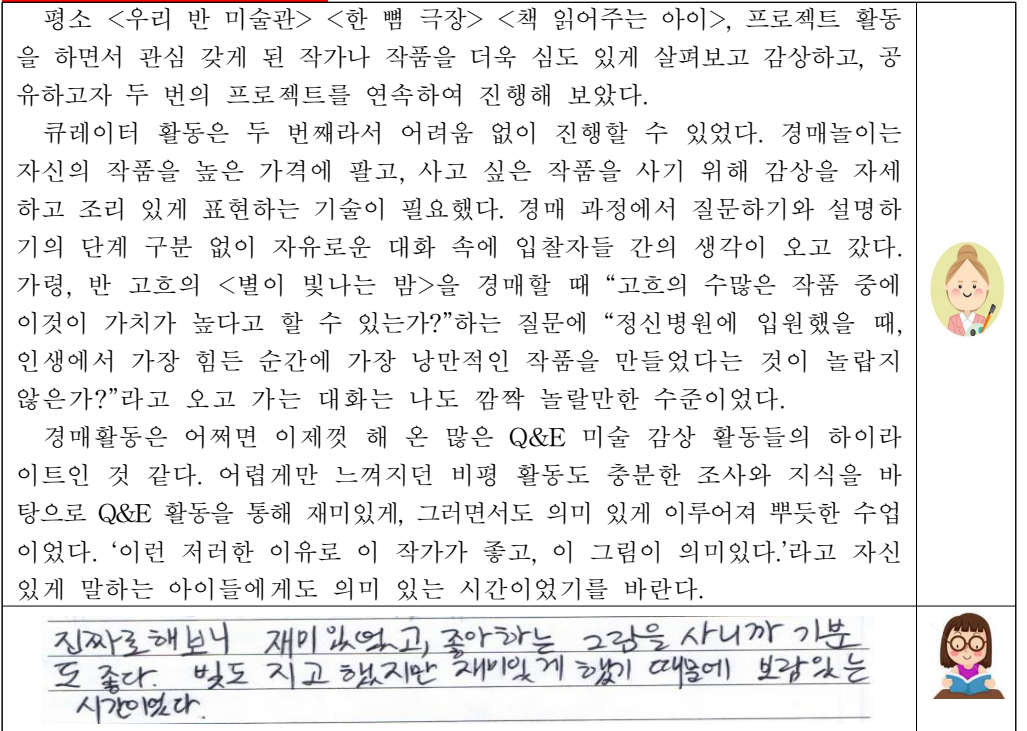 평소 <우리 반 미술관> <한 뼘 극장> <책 읽어주는 아이>, 프로젝트 활동
을 하면서 관심 갖게 된 작가나 작품을 더욱 심도 있게 살펴보고 감상하고, 공
유하고자 두 번의 프로젝트를 연속하여 진행해 보았다.
큐레이터 활동은 두 번째라서 어려움 없이 진행할 수 있었다. 경매놀이는
자신의 작품을 높은 가격에 팔고, 사고 싶은 작품을 사기 위해 감상을 자세
하고 조리 있게 표현하는 기술이 필요했다. 경매 과정에서 질문하기와 설명하
기의 단계 구분 없이 자유로운 대화 속에 입찰자들 간의 생각이 오고 갔다.
가령, 반 고흐의 <별이 빛나는 밤>을 경매할 때 “고흐의 수많은 작품 중에
이것이 가치가 높다고 할 수 있는가?”하는 질문에 “정신병원에 입원했을 때,
인생에서 가장 힘든 순간에 가장 낭만적인 작품을 만들었다는 것이 놀랍지
않은가?”라고 오고 가는 대화는 나도 깜짝 놀랄만한 수준이었다.
경매활동은 어쩌면 이제껏 해 온 많은 Q&E 미술 감상 활동들의 하이라
이트인 것 같다. 어렵게만 느껴지던 비평 활동도 충분한 조사와 지식을 바
탕으로 Q&E 활동을 통해 재미있게, 그러면서도 의미 있게 이루어져 뿌듯한 수업
이었다. ‘이런 저러한 이유로 이 작가가 좋고, 이 그림이 의미있다.’라고 자신
있게 말하는 아이들에게도 의미 있는 시간이었기를 바란다.
진짜로 해보니 재미있었고, 좋아하는 그림을 사니까 기분
도 좋다. 빚도 지고 했지만 재미있게 했기 때문에 보람있는
시간이었다.